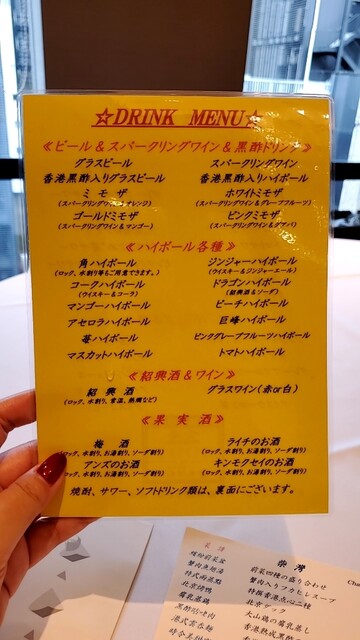 ☆DRINK MENU☆
≪ビール＆スパークリングワイン＆黒酢ドリンク≫
グラスビール　スパークリングワイン
香港黒酢入りグラスビール　香港黒酢入りハイボール
ミモザ　ホワイトミモザ
(スパークリングワイン&オレンジ)　(スパークリングワイン&グレープフルーツ)
ゴールドミモザ　ピンクミモザ
(スパークリングワイン&マンゴー)　(スパークリングワイン&グアバ)
≪ハイボール各種≫
角ハイボール　ジンジャーハイボール
(ロック、水割り等もご用意できます。)　(ウイスキー&ジンジャーエール)
コークハイボール　ドラゴンハイボール
(ウイスキー&コーラ)　(紹興酒&ソーダ)
マンゴーハイボール　ピーチハイボール
アセロラハイボール　巨峰ハイボール
苺ハイボール　ピンクグレープフルーツハイボール
マスカットハイボール　トマトハイボール
≪紹興酒＆ワイン≫
紹興酒　グラスワイン(赤or白)
(ロック、水割り、常温、熱燗など)
≪果実酒≫
梅酒　ライチのお酒
(ロック、水割り、お湯割り、ソーダ割り)　(ロック、水割り、お湯割り、ソーダ割り)
アンズのお酒　キンモクセイのお酒
(ロック、水割り、お湯割り、ソーダ割り)　(ロック、水割り、お湯割り、ソーダ割り)
焼酎、サワー、ソフトドリンク類は、裏面にございます。
前菜四種の盛り合わせ
蟹肉入りフカヒレスープ
北京ダック